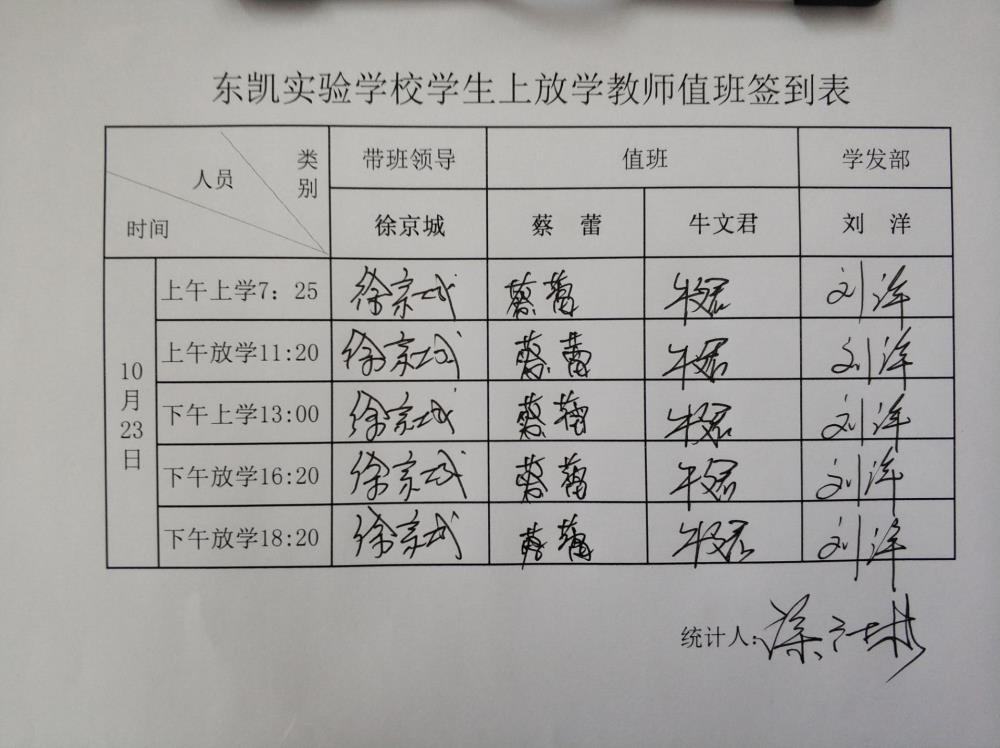 东凯实验学校学生上放学教师值班签到表
类别 人员 时间 带班领导 值班 学发部
徐京城 蔡 蕾 牛文君 刘 洋
10月23日
上午上学7：25 徐京城 蔡蕾 牛文君 刘洋
上午放学11:20 徐京城 蔡蕾 牛文君 刘洋
下午上学13:00 徐京城 蔡蕾 牛文君 刘洋
下午放学16:20 徐京城 蔡蕾 牛文君 刘洋
下午放学18:20 徐京城 蔡蕾 牛文君 刘洋
统计人: